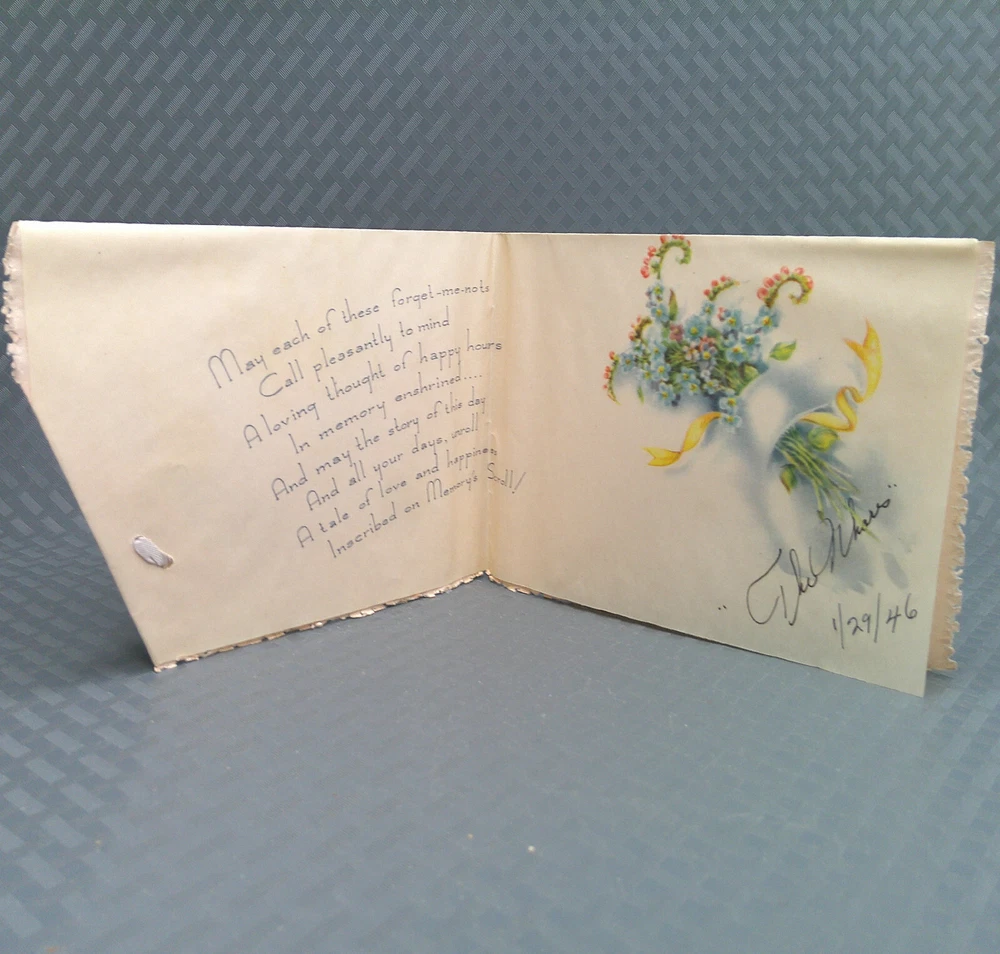 May each of these forget-me-nots
Call pleasantly to mind
A loving thought of happy hours
In memory enshrined....
And may the story of this day
And all your days, unroll
A tale of love and happiness
Inscribed on Memory's Scroll!
1/29/46